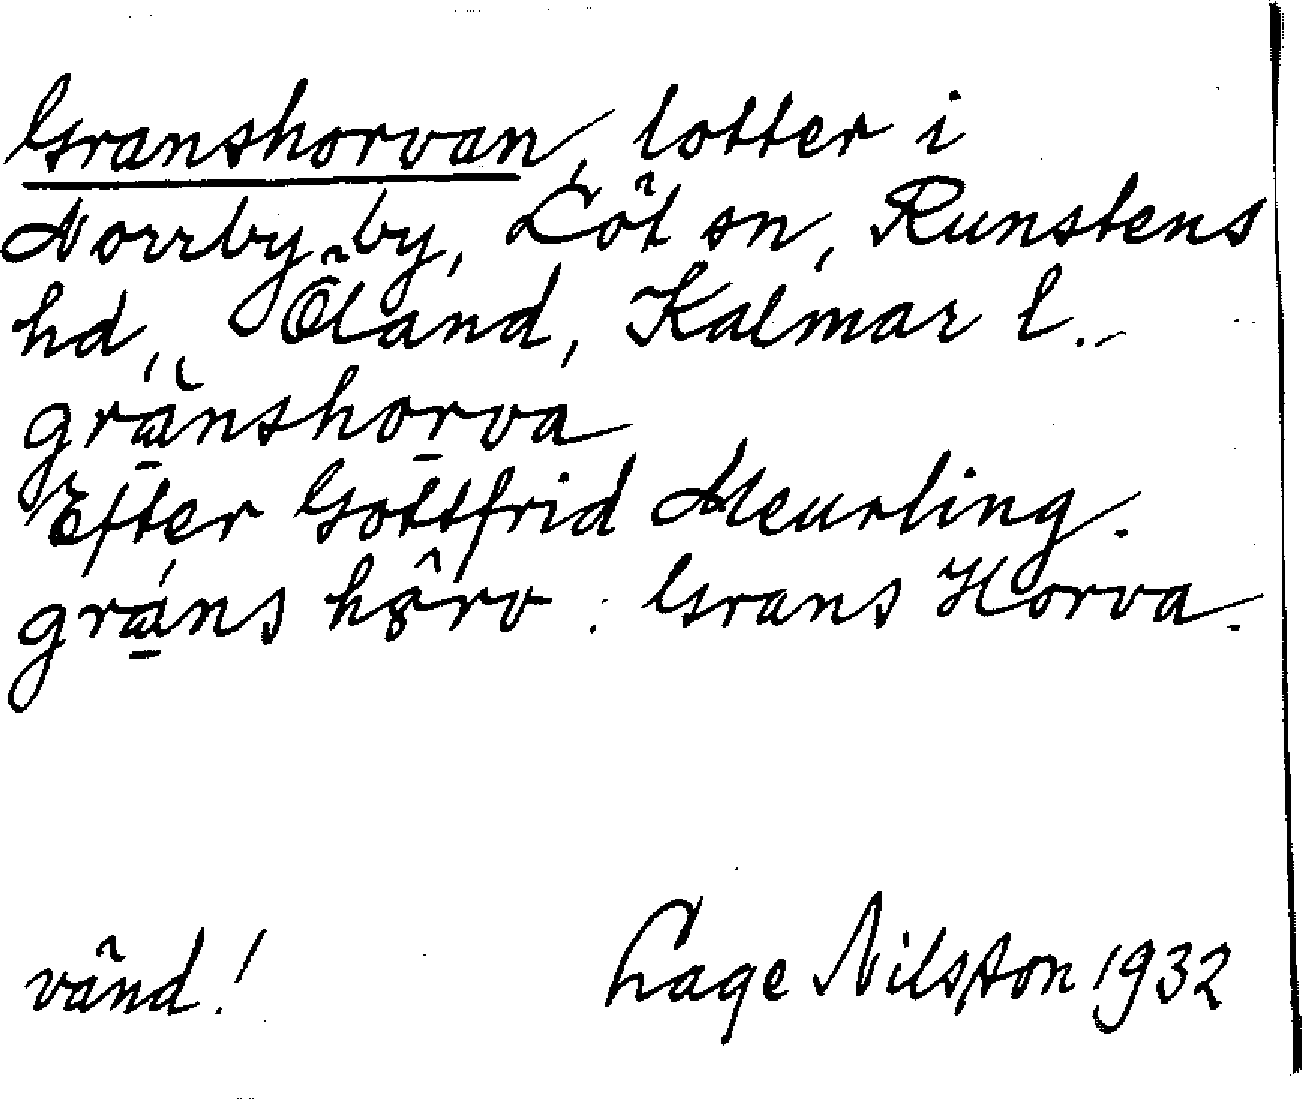 Granshorvan, lotter i
Norrby by, Löt sn, Runstens
hd, Öland, Kalmar l.
gränshorva
Efter Gottfrid Meurling.
gráns hôrv : Grans Horva.
vänd! Lage Nilsson 1932